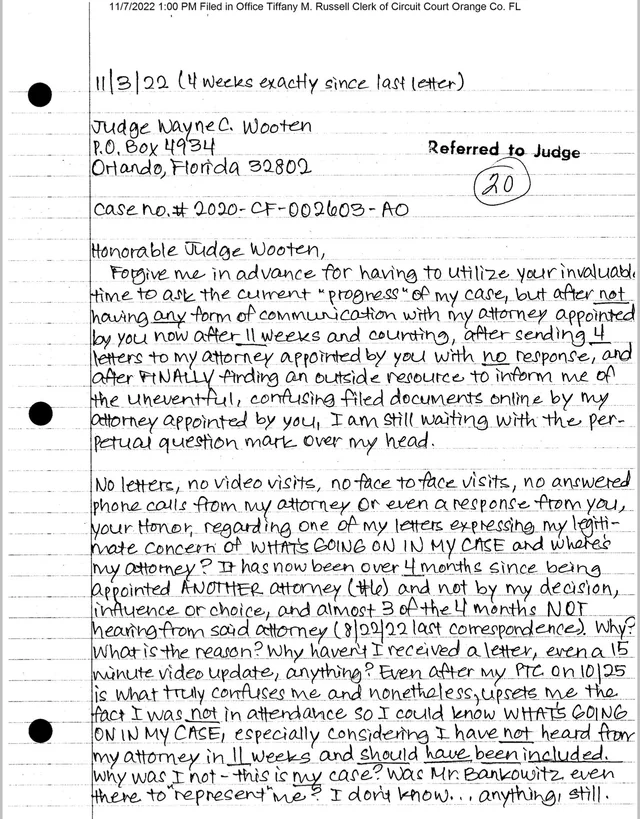 11/7/2022 1:00 PM Filed in Office Tiffany M. Russell Clerk of Circuit Court Orange Co. FL
11/3/22 (4 weeks exactly since last letter)
Judge Wayne C. Wooten
P.O. Box 4934
Orlando, Florida 32802
Referred to Judge
20
Case no.# 2020-CF-002603-AO
Honorable Judge Wooten,
Forgive me in advance for having to utilize your invaluabl
time to ask the current "progress" of my case, but after not
having any form of communication with my attorney appointed
by you now after 11 weeks and counting, after sending 4
letters to my attorney appointed by you with no response, and
after FINALLY finding an outside resource to inform me of
the uneventful, confusing filed documents online by my
attorney appointed by you, I am still waiting with the per-
petual question mark over my head.
No letters, no video visits, no face to face visits, no answered
phone calls from my attorney or even a response from you,
your Honor, regarding one of my letters expressing my legiti-
mate concern of WHAT'S GOING ON IN MY CASE and where's
my attorney? It has now been over 4 months since being
appointed ANOTHER attorney (#6) and not by my decision,
influence or choice, and almost 3 of the 4 months NOT
hearing from said attorney (8/22/22 last correspondence). Why?
What is the reason? Why haven't I received a letter, even a 15
minute video update, anything? Even after my PTC on 10/25
is what truly confuses me and nonetheless, upsets me the
fact I was not in attendance so I could know WHAT'S GOING
ON IN MY CASE, especially considering I have not heard from
my attorney in 11 weeks and should have been included.
Why was I not - this is my case? Was Mr. Bankowitz even
there to "represent" me? I don't know... anything, still.